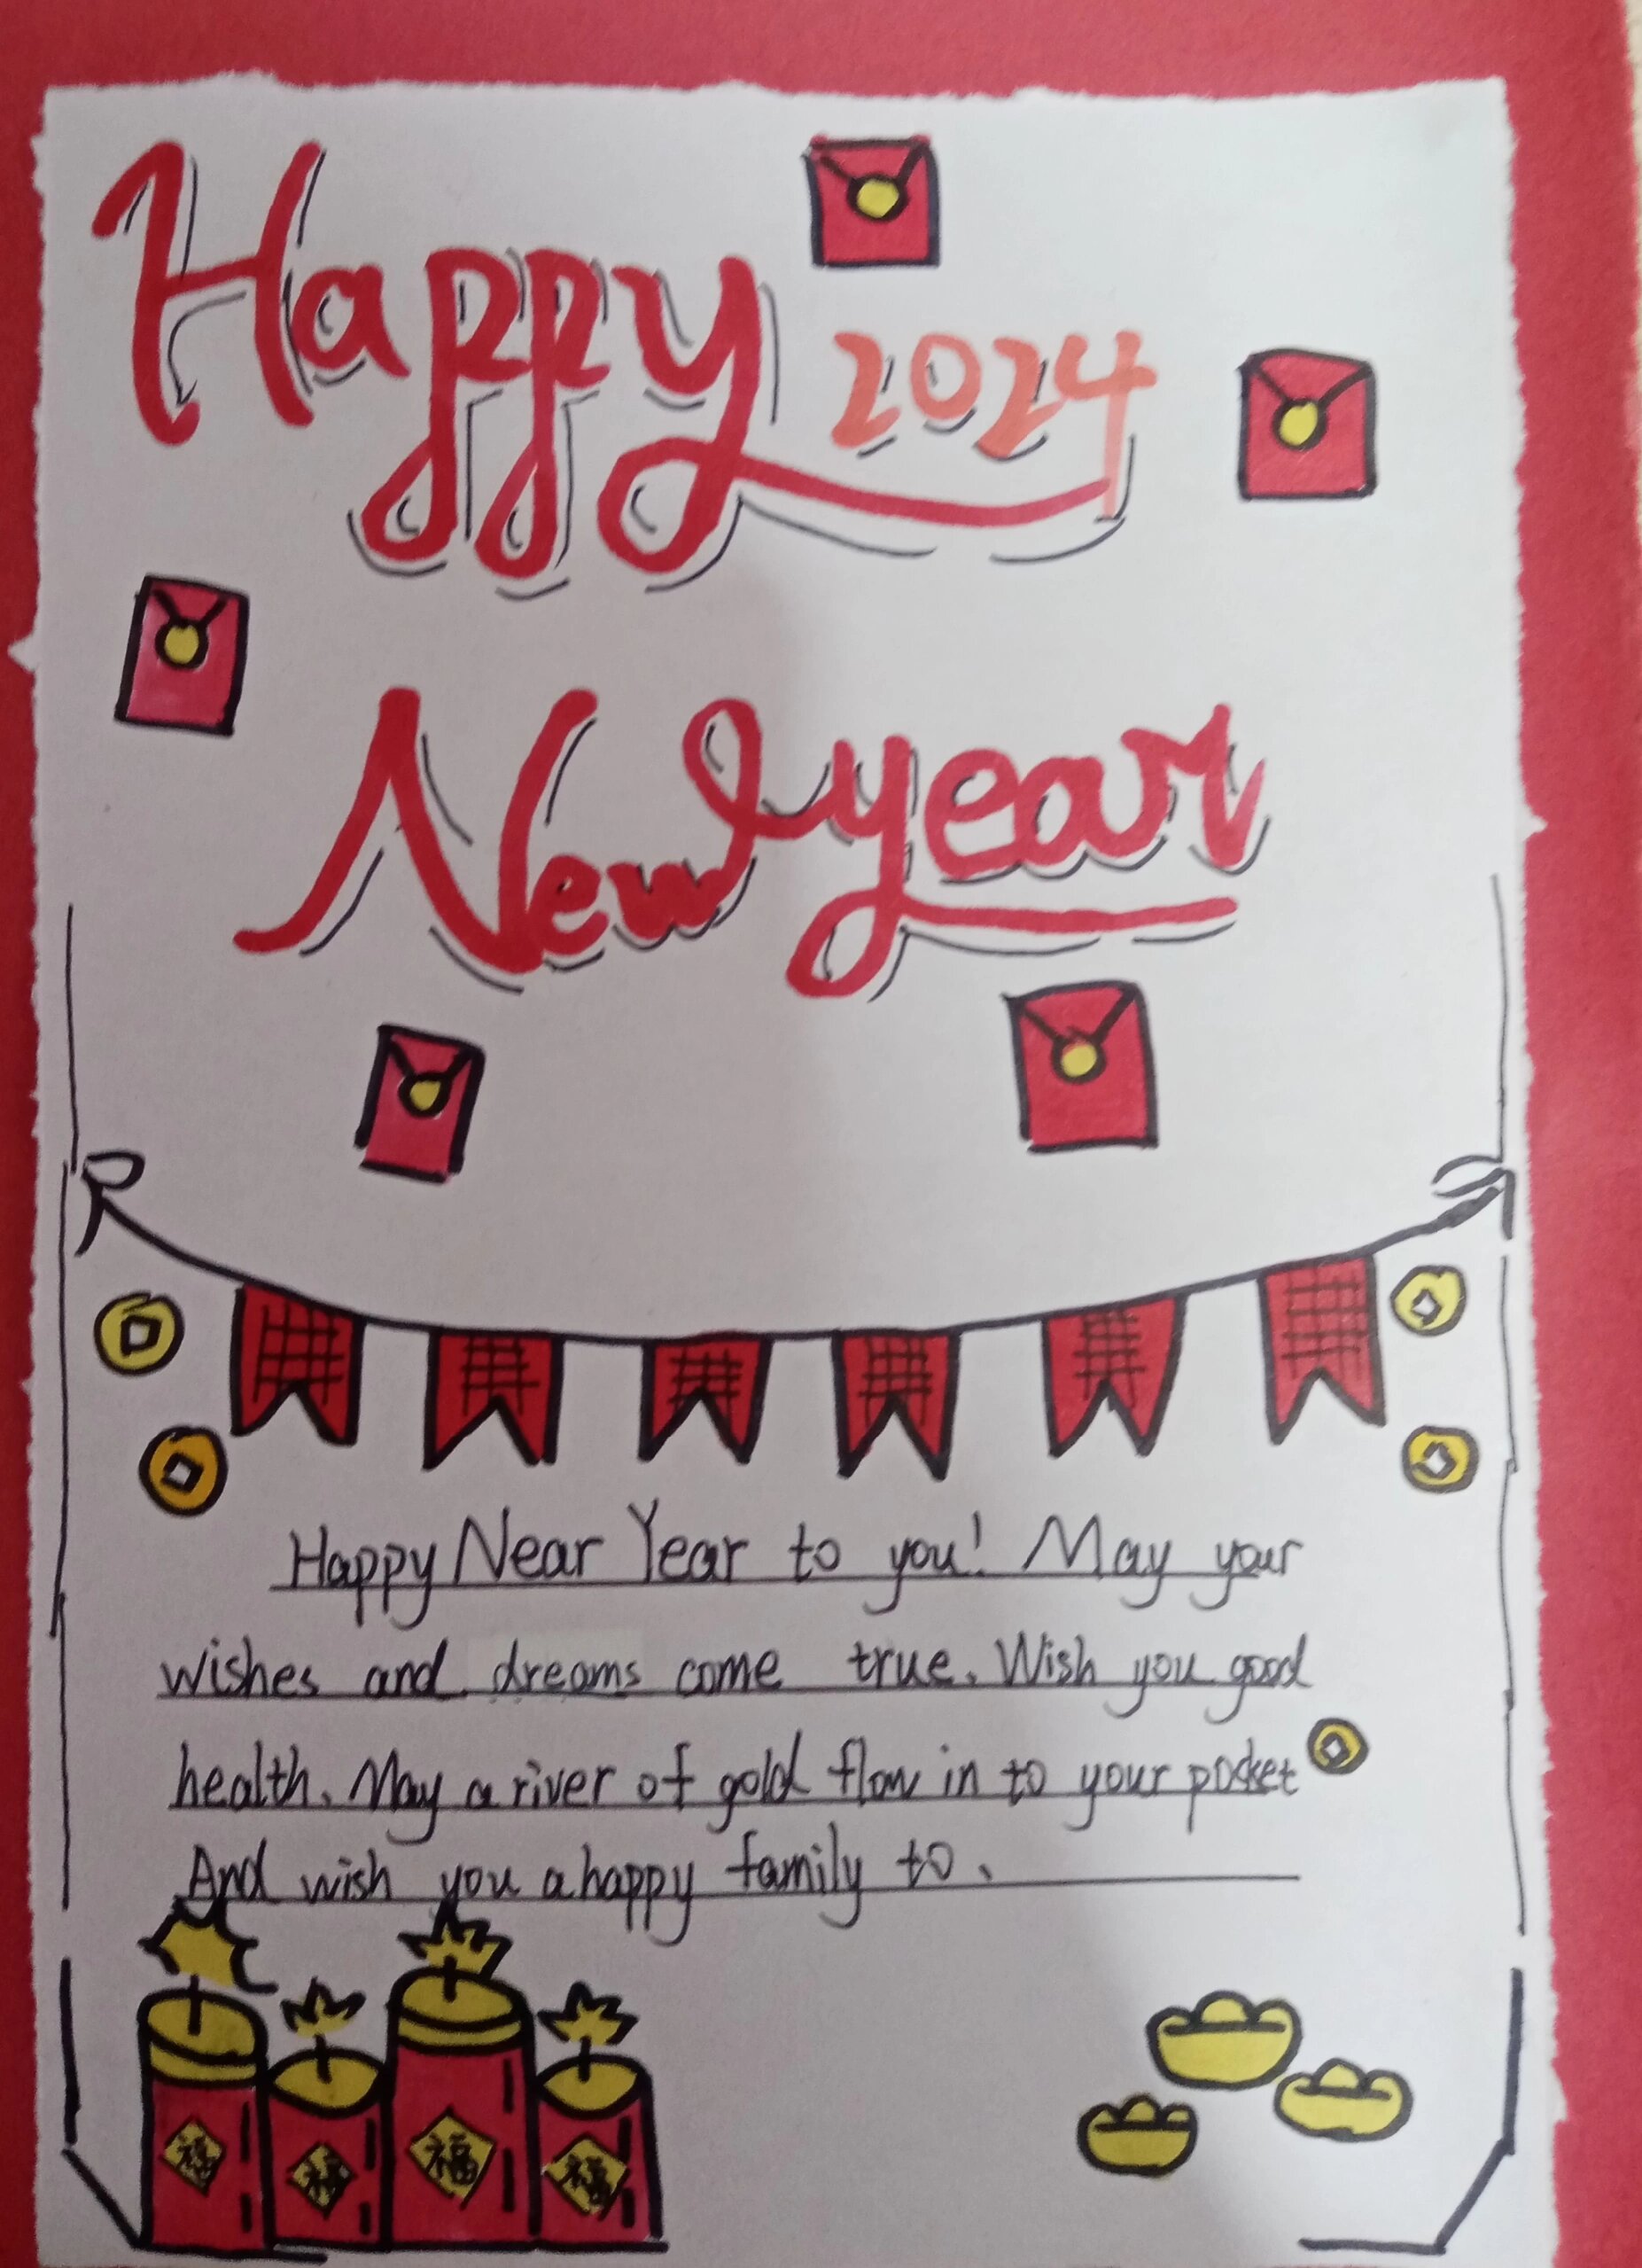 Happy 2024
New year
Happy Near Year to you! May your
wishes and dreams come true. Wish you good
health. May a river of gold flow in to your pocket
And wish you a happy family to.
福
福
福
福